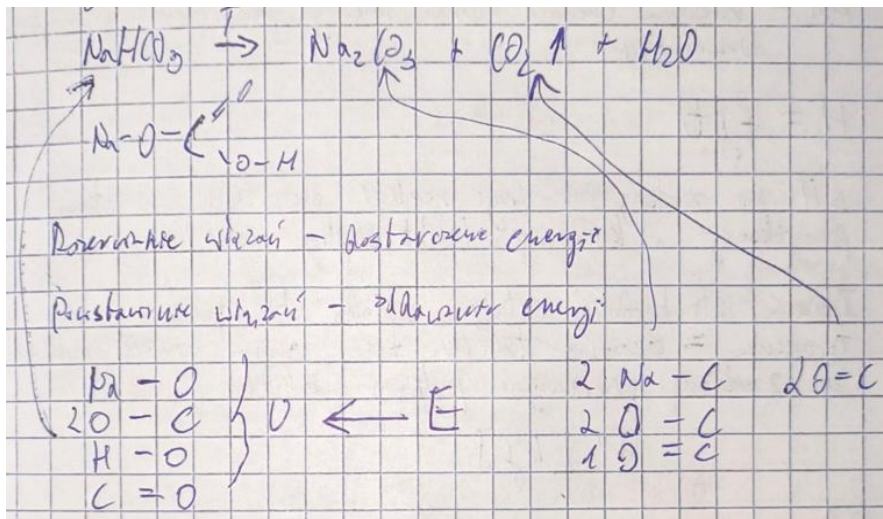 T
NaHCO₃ → Na₂CO₃ + CO₂ ↑ + H₂O
O
Na-O-C
O-H
Rozerwanie wiązań - dostarczenie energii
Powstawanie wiązań - oddawanie energi
Na - O
2 Na - C 2 O = C
2 O - C } U ← E
2 O - C
H - O
1 O = C
C = O